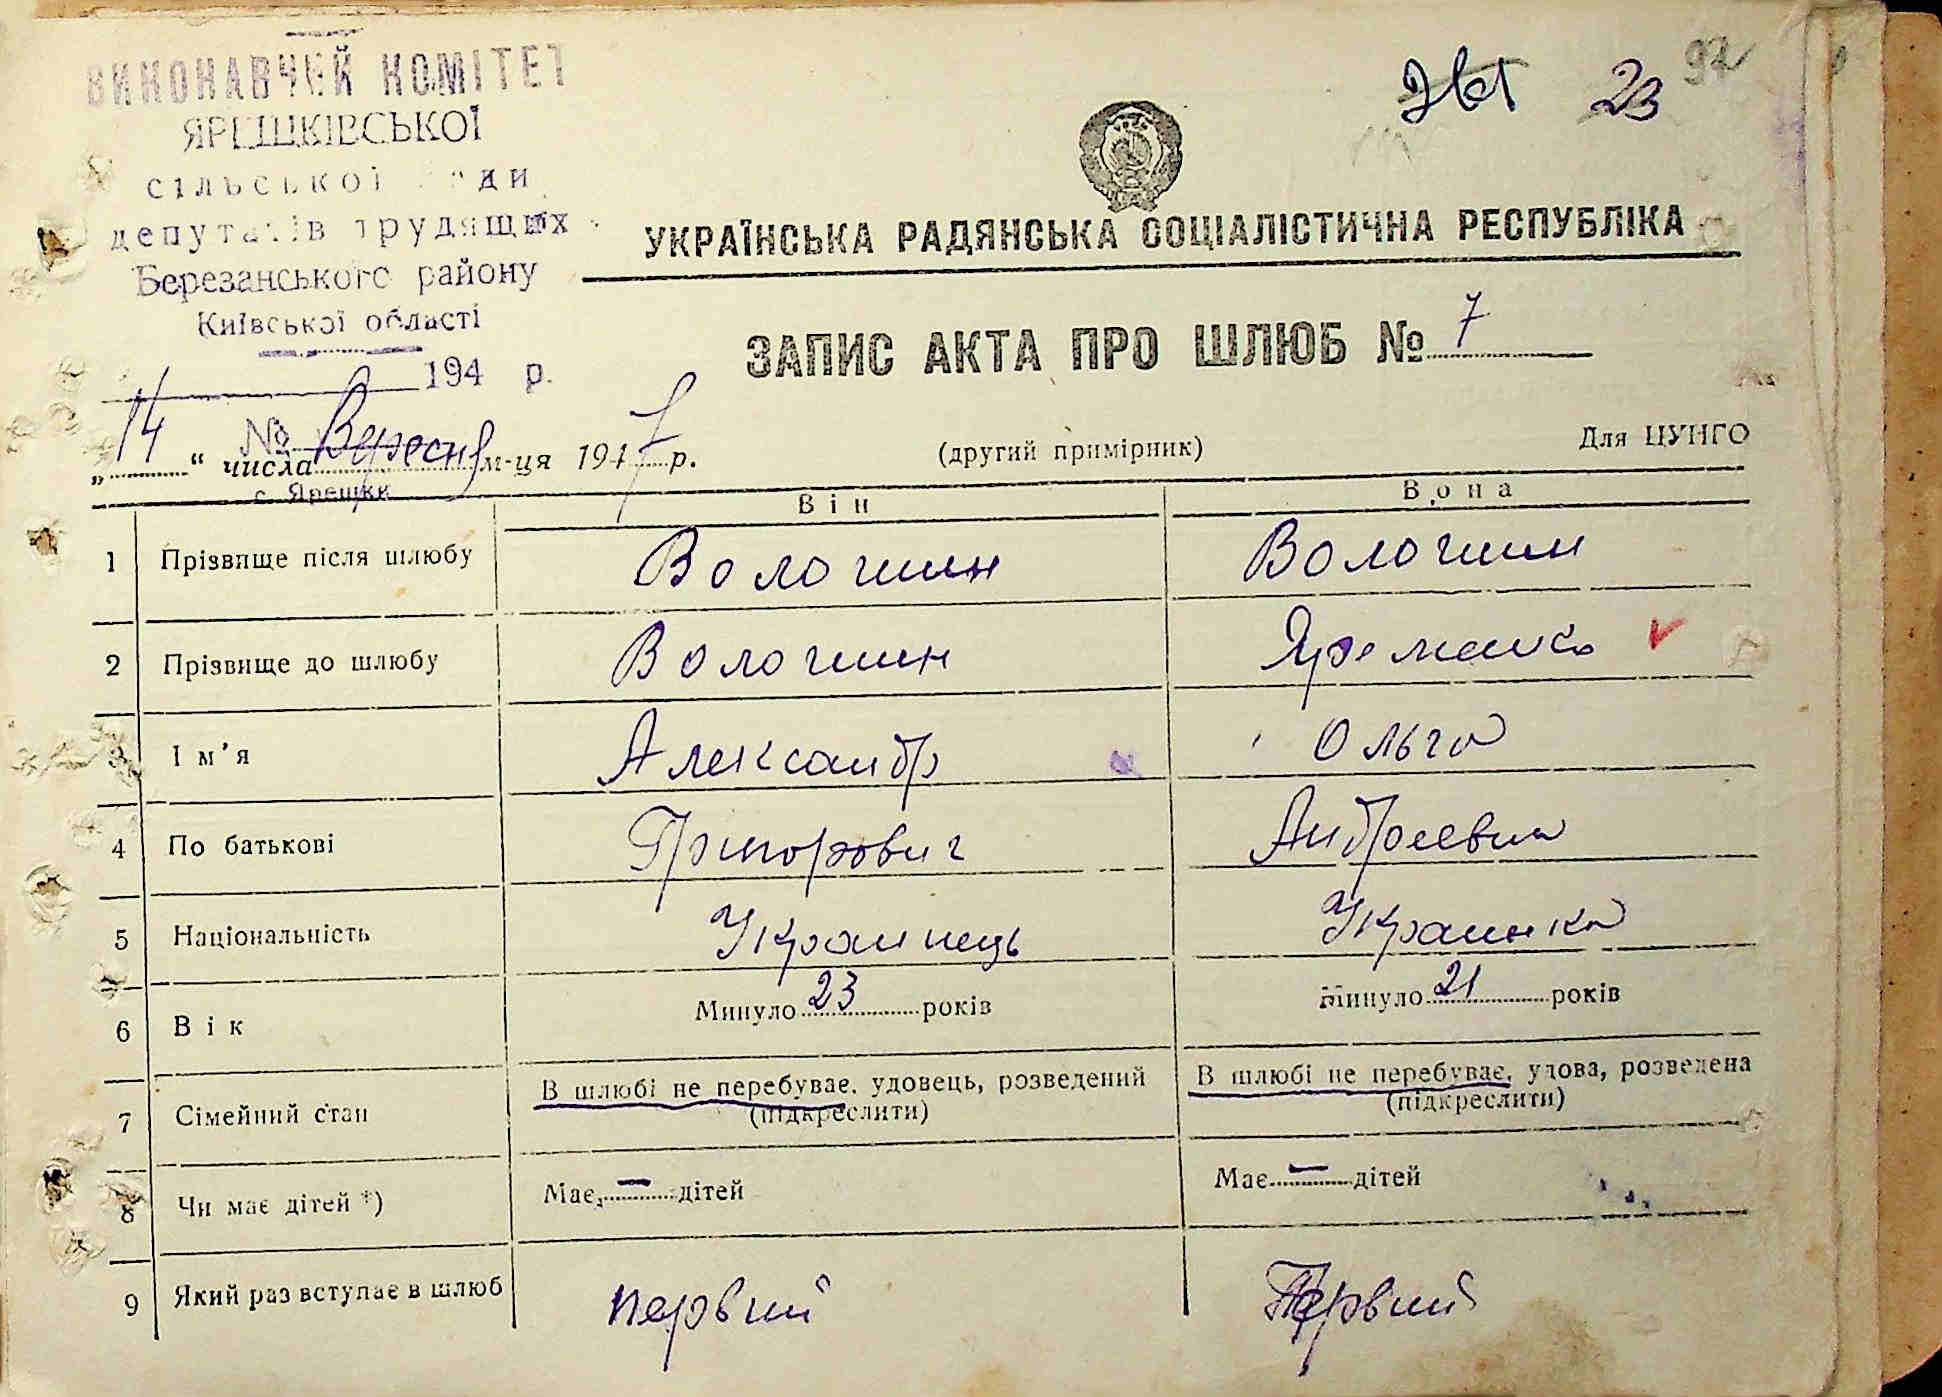 ВИКОНАВЧИЙ КОМІТЕТ
ЯРЕШКІВСЬКОЇ
сільської ради
депутатів трудящих
Березанського району
Київської області
194 р.
№
с. Ярешки
23
97
УКРАЇНСЬКА РАДЯНСЬКА СОЦІАЛІСТИЧНА РЕСПУБЛІКА
ЗАПИС АКТА ПРО ШЛЮБ № 7
„14“ числа Вересня м-ця 1947 р.
(другий примірник)
Для ЦУНГО
Він Вона
1 Прізвище після шлюбу Вологшин Вологшин
2 Прізвище до шлюбу Вологшин Яременко
3 Ім’я Александр Ольга
4 По батькові Григорович Андреевна
5 Національність Украинець Украинка
6 Вік Минуло 23 років Минуло 21 років
7 Сімейний стан В шлюбі не перебуває, удовець, розведений (підкреслити) В шлюбі не перебуває, удова, розведена (підкреслити)
8 Чи має дітей *) Має — дітей Має — дітей
9 Який раз вступає в шлюб первий Первий